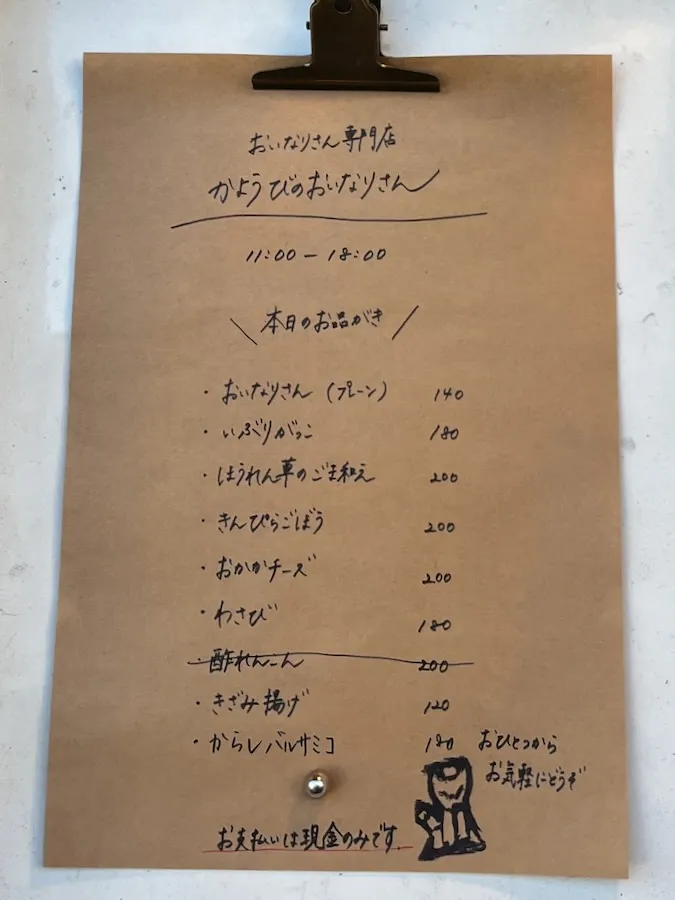 おいなりさん専門店
かようびのおいなりさん
11:00 - 18:00
\ 本日のお品がき /
・おいなりさん (プレーン) 140
・いぶりがっこ 180
・ほうれん草のごま和え 200
・きんぴらごぼう 200
・おかかチーズ 200
・わさび 180
・酢れんこん 200
・きざみ揚げ 120
・からしバルサミコ 180
おひとつから
お気軽にどうぞ
お支払いは現金のみです.